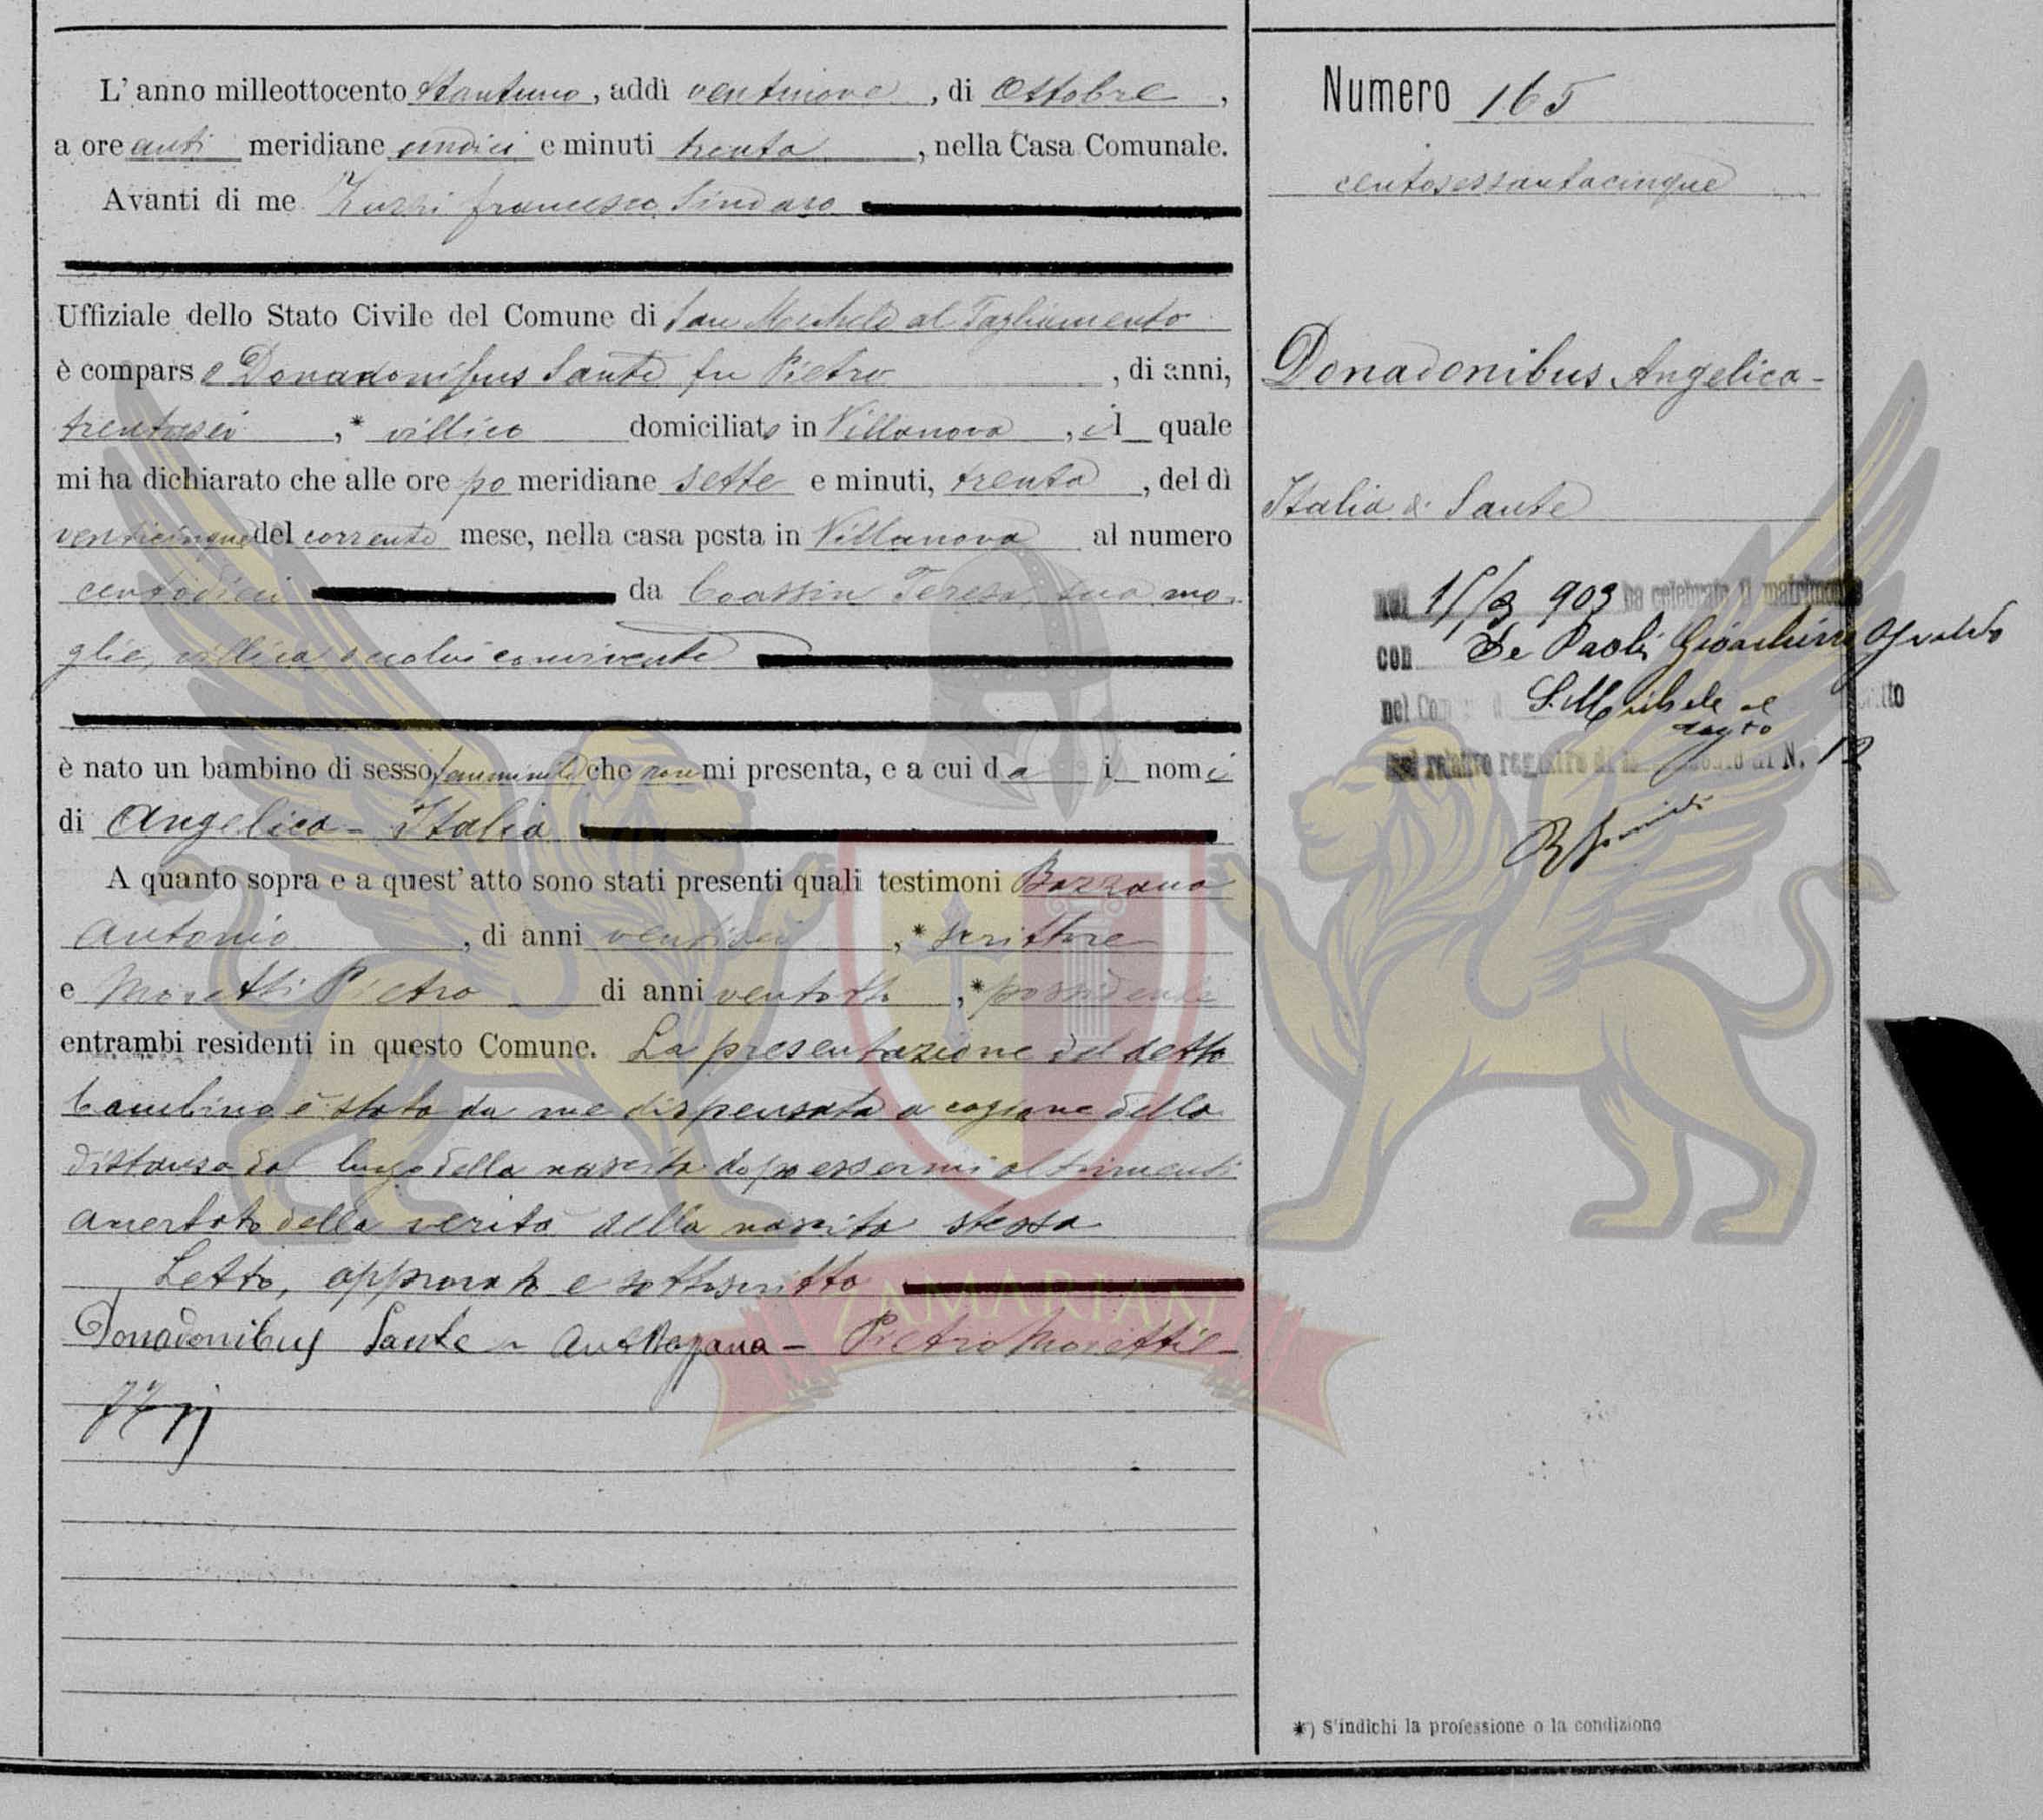 L'anno milleottocento ottantuno, addì ventinove, di Ottobre,
a ore anti meridiane undici e minuti trenta, nella Casa Comunale.
Avanti di me Zuzzi Francesco Sindaco
Uffiziale dello Stato Civile del Comune di San Michele al Tagliamento
è comparso Donadonibus Sante fu Pietro, di anni,
trentasei, * villico domiciliato in Villanova, il quale
mi ha dichiarato che alle ore po meridiane sette e minuti, trenta, del dì
venticinque del corrente mese, nella casa posta in Villanova al numero
centodieci da Coassin Teresa, sua mo-
glie, villica seco lui convivente
è nato un bambino di sesso femminile che non mi presenta, e a cui da i nomi
di Angelica-Italia
A quanto sopra e a quest'atto sono stati presenti quali testimoni Bazzana
Antonio, di anni ventisei, * scrittore
e Moretti Pietro di anni ventotto, * possidente
entrambi residenti in questo Comune. La presentazione del detto
bambino è stata da me dispensata a cagione della
distanza dal luogo della nascita dopo essermi altrimenti
accertato della verità della nascita stessa
Letto, approvato e sottoscritto
Donadonibus Sante - Ant Bazzana - Pietro Moretti
Numero 165
centosessantacinque
Donadonibus Angelica-
Italia di Sante
nel 15/3 903 ha celebrato il matrimonio
con De Paoli Gioachino Osvaldo
nel Comune d S. Michele al
Tagto
nel relativo registro di N. 12
*) S'indichi la professione o la condizione
ZAMARIAN